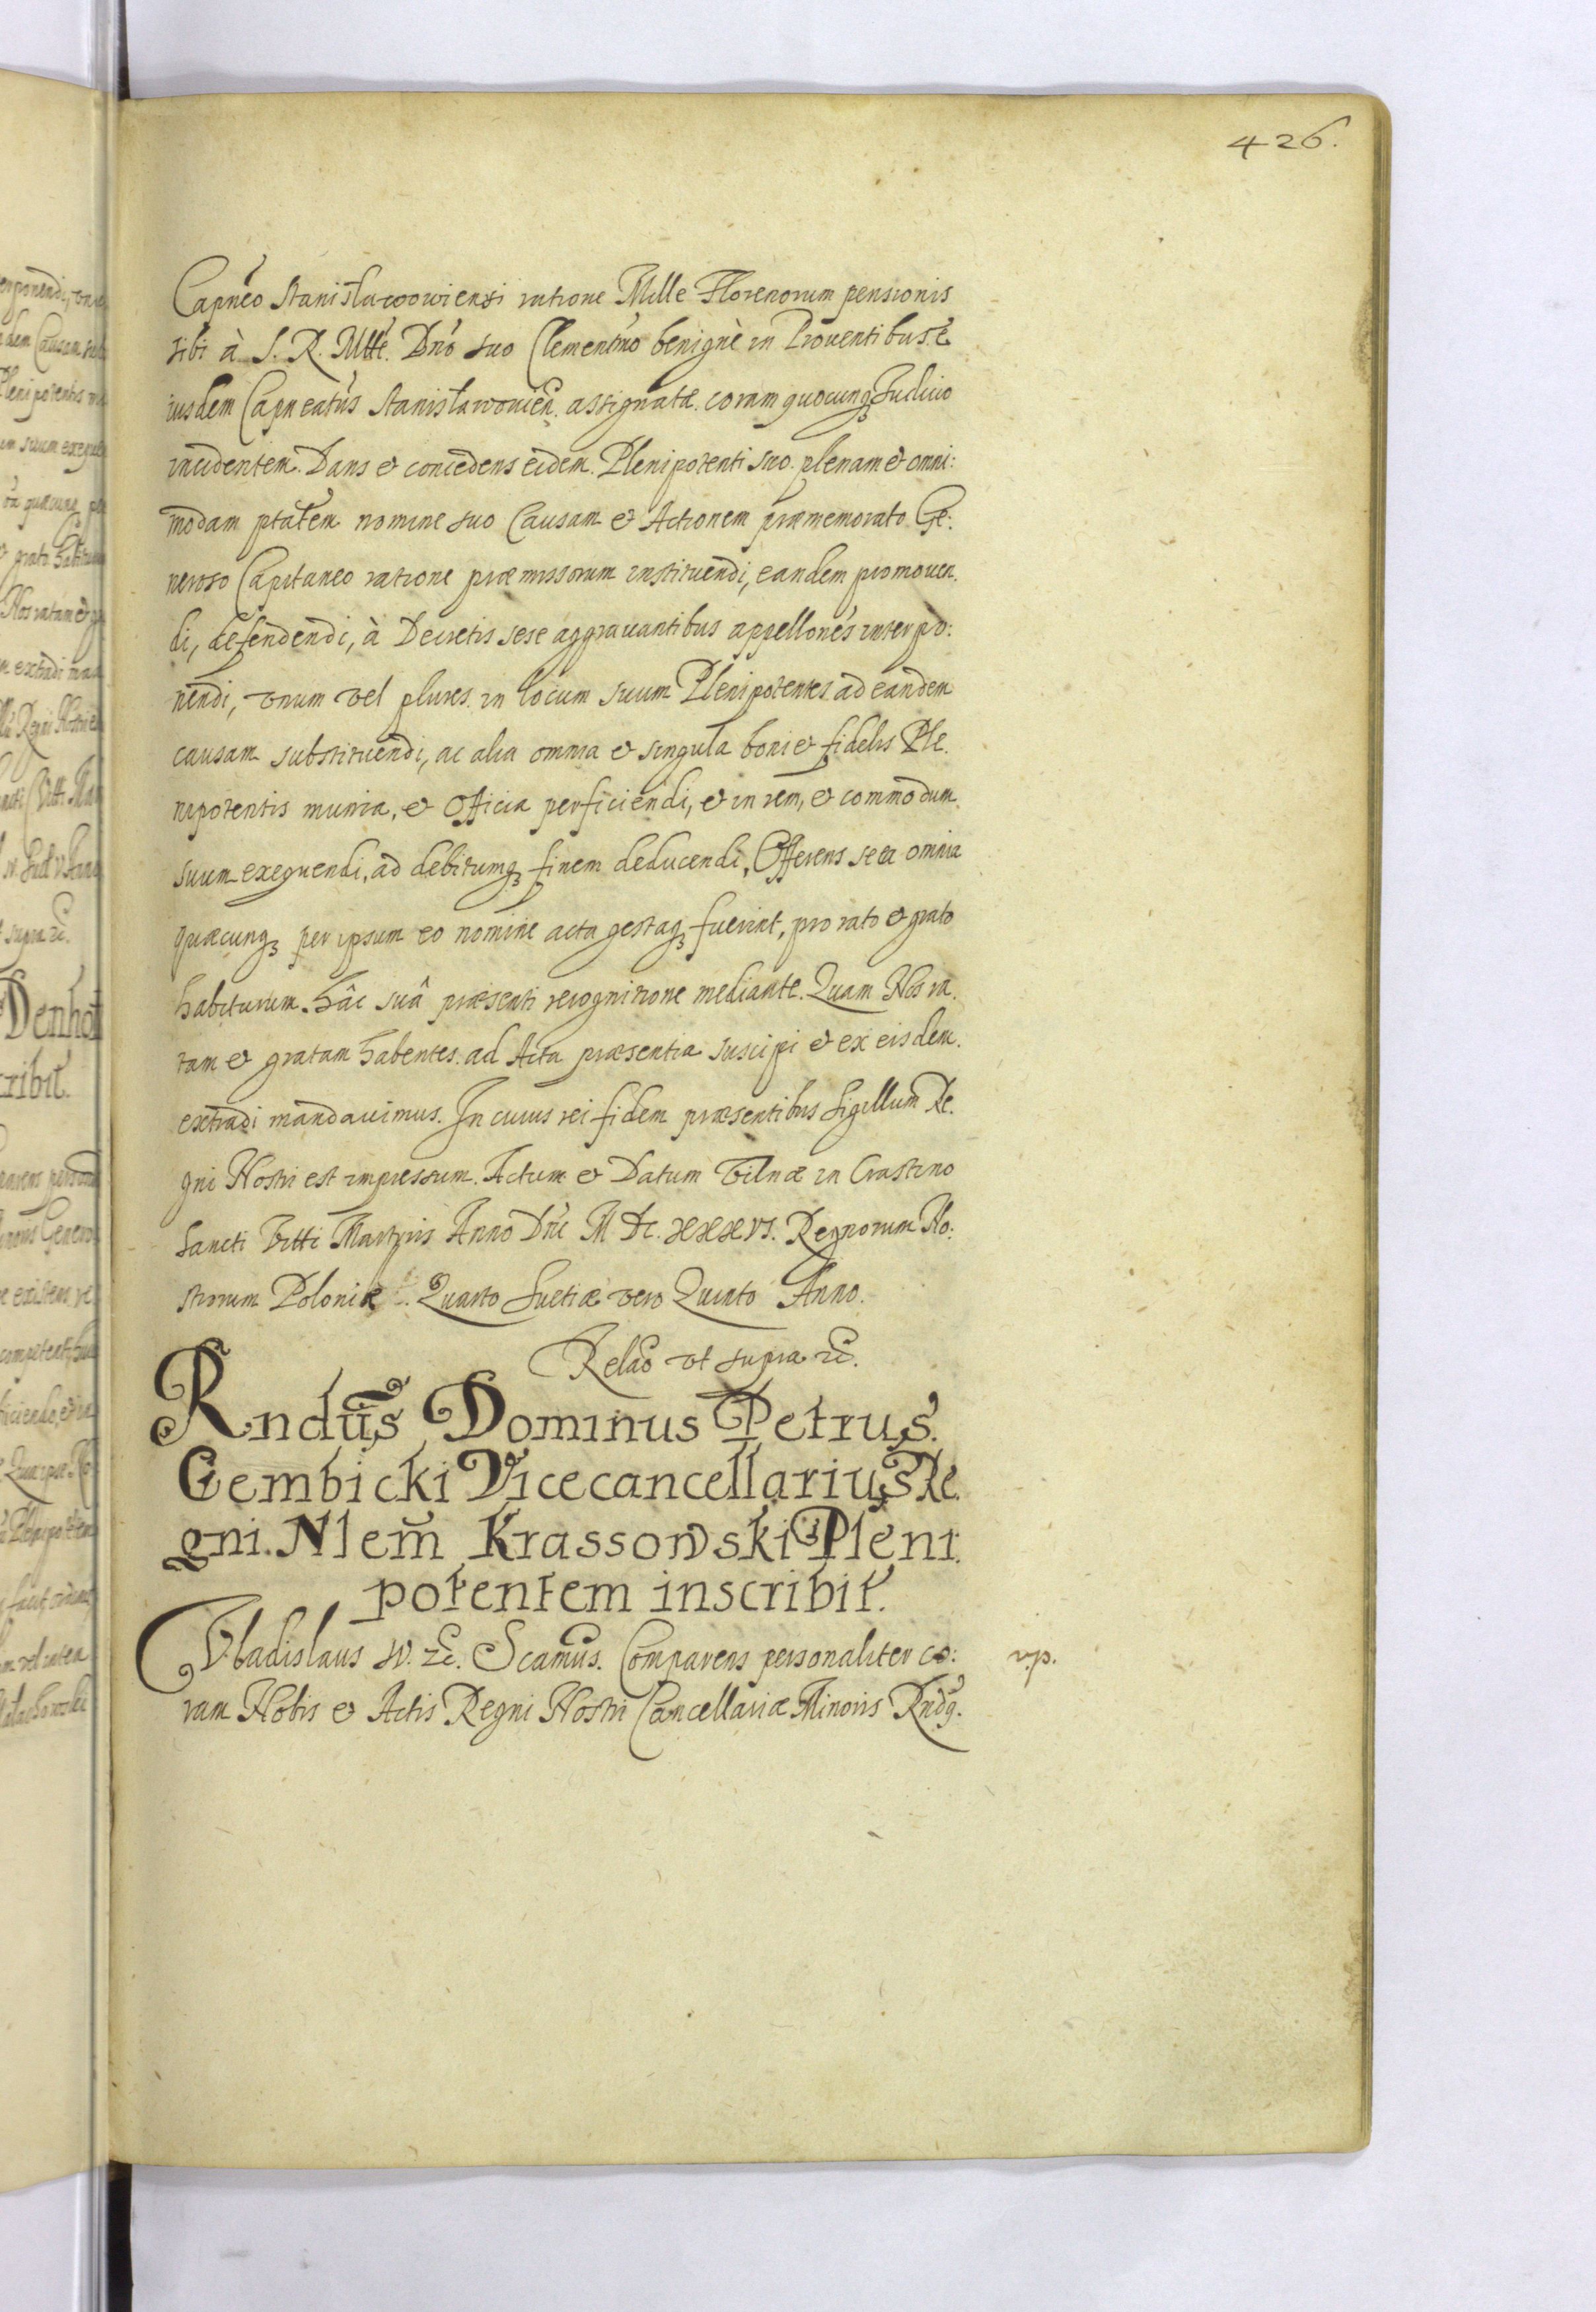 426.
Capneo Stanislawowiensi ratione Mille Florenorum pensionis
sibi à S. R. Mtte. Dno suo Clementmo benignè in Prouentibus e
iusdem Capneatus Stanislawowien. assignatæ. coram quocunq Judicio
incidentem. Dans et concedens eidem. Plenipotenti suo. plenam et omni:
modam ptatem nomine suo Causam et Actionem præmemorato Ge:
neroso Capitaneo ratione præmissorum instituendi, eandem promouen.
di, defendendi, à Decretis sese aggrauantibus appellones interpo:
nendi, vnum vel plures in locum suum Plenipotentes ad eandem
causam substituendi, ac alia omnia et singula boni et fidelis Ple.
nipotentis munia, et Officia perficiendi, et in rem, et commodum
suum exequendi, ad debitumq finem deducendi, Offerens se ea omnia
quæcunq per ipsum eo nomine acta gestaq fuerint, pro rato et grato
habiturum. hâc suâ præsenti recognitione mediante. Quam Nos ra.
tam et gratam habentes. ad Acta præsentia suscipi et ex eisdem.
extradi mandauimus. In cuius rei fidem præsentibus Sigillum Re.
gni Nostri est impressum. Actum et Datum Vilnæ in Crastino
Sancti Vitti Martyris Anno Dni M DC. XXXVI. Regnorum No:
strorum Poloniæ Quarto Suetiæ vero Quinto Anno.
Relao vt supra etc.
Rndus Dominus Petrus.
Gembicki Vicecancellarius Re.
gni. Nlem Krassowski Pleni.
potentem inscribit.
Vladislaus IV. etc. Scamus. Comparens personaliter co: vip.
ram Nobis et Actis Regni Nostri Cancellariæ Minoris Rndq.